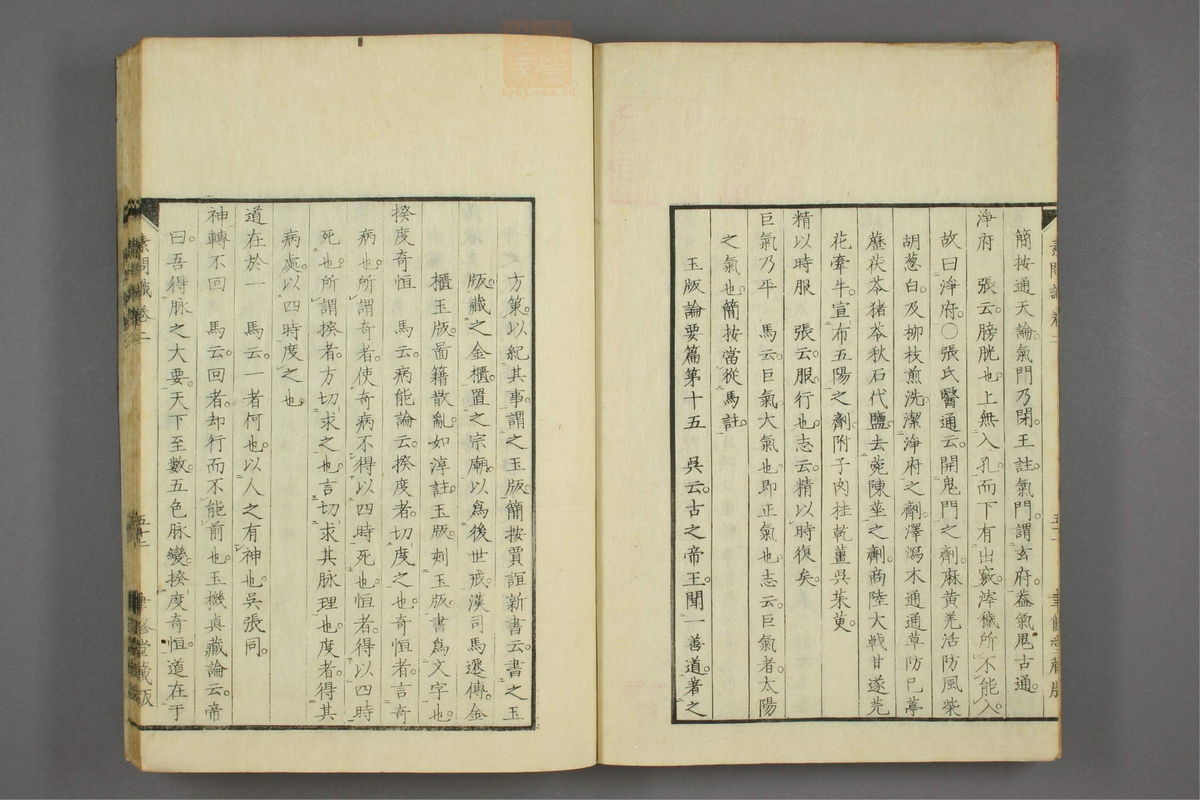 簡按通天論氣門乃閉王註氣門謂玄府葢氣鬼古通
淨府　張云膀胱也上無入孔而下有出竅滓穢所不能入
故曰淨府〇張氏醫通云開鬼門之劑麻黃羌活防風柴
胡葱白及柳枝煎洗潔淨府之劑澤瀉木通通草防已葶
藶茯苓猪苓秋石代鹽去菀陳莝之劑商陸大戟甘遂芫
花牽牛宣布五陽之劑附子肉桂乾薑吳茱萸
精以時服　張云服行也志云精以時復矣
巨氣乃平　馬云巨氣大氣也即正氣也志云巨氣者太陽
之氣也簡按當從馬註
玉版論要篇第十五　吳云古之帝王聞一善道著之
方策以紀其事謂之玉版簡按賈誼新書云書之玉
版藏之金櫃置之宗廟以爲後世戒漢司馬遷傳金
櫃玉版圖籍散亂如淳註玉版刻玉版書爲文字也
揆度奇恒　馬云病能論云揆度者切度之也奇恒者言奇
病也所謂奇者使奇病不得以四時死也恒者得以四時
死也所謂揆者方切求之也言切求其脉理也度者得其
病處以四時度之也
道在於一　馬云一者何也以人之有神也吳張同
神轉不回　馬云回者却行而不能前也玉機眞藏論云帝
曰吾得脉之大要天下至數五色脉變揆度奇恒道在于
素問識卷二